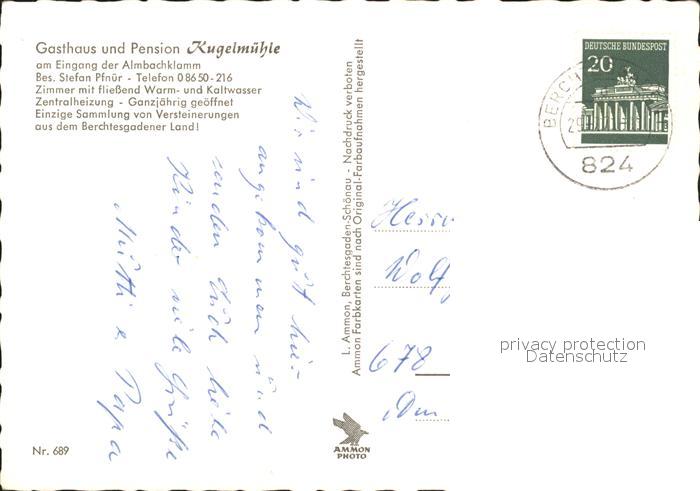 Gasthaus und Pension Kugelmühle
am Eingang der Almbachklamm
Bes. Stefan Pfnür - Telefon 08650-216
Zimmer mit fließend Warm- und Kaltwasser
Zentralheizung - Ganzjährig geöffnet
Einzige Sammlung von Versteinerungen
aus dem Berchtesgadener Land!
Wir sind gut hier
angekommen und
senden Euch liebe
Kinder viele Grüße
Mutti u Papa
L. Ammon, Berchtesgaden-Schönau - Nachdruck verboten
Ammon Farbkarten sind nach Original-Farbaufnahmen hergestellt
DEUTSCHE BUNDESPOST
20
BERCH
824
Herrn
Wolf
678
privacy protection
Datenschutz
AMMON
PHOTO
Nr. 689